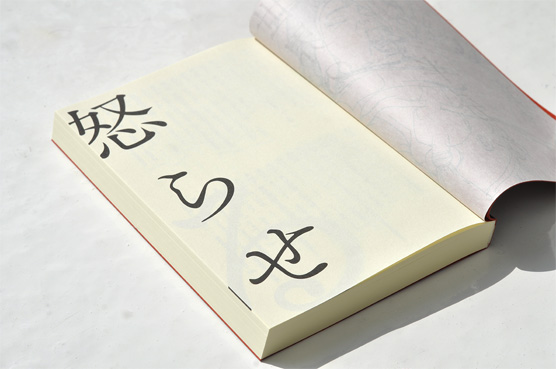 怒らせ